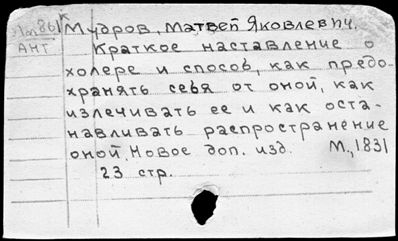 861к
АНТ
Мудров, Матвей Яковлевич.
Краткое наставление о
холере и способ, как предо-
хранять себя от оной, как
излечивать ее и как оста-
навливать распространение
оной. Новое доп. изд. М., 1831
23 стр.